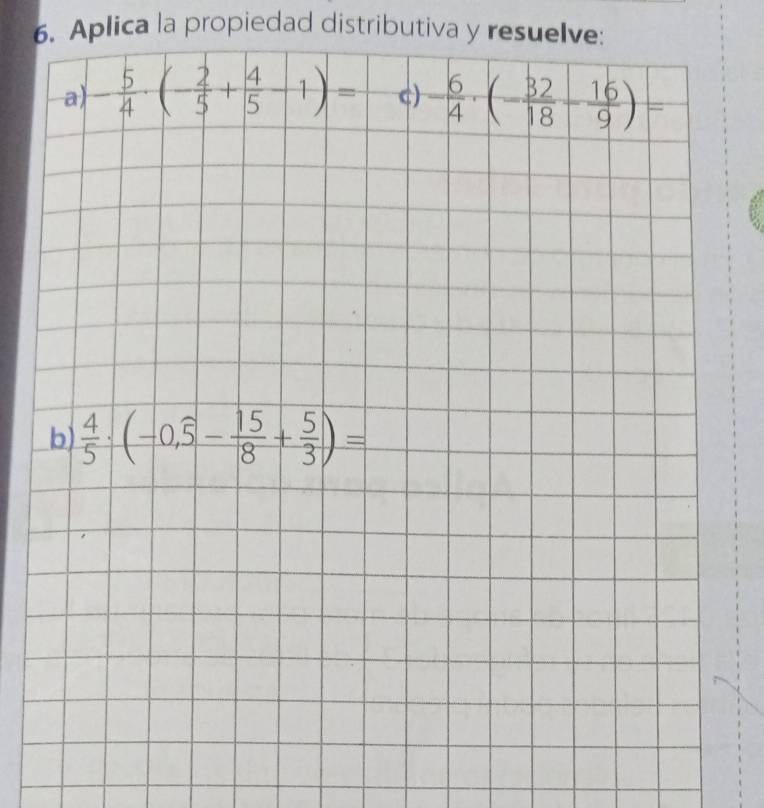 6. Aplica la propiedad distributiva y resuelve:
a) -5/4 · (-2/5 + 4/5 - 1) = c) -6/4 · (-32/18 - 16/9) =
b) 4/5 · (-0,5̑ - 15/8 + 5/3) =